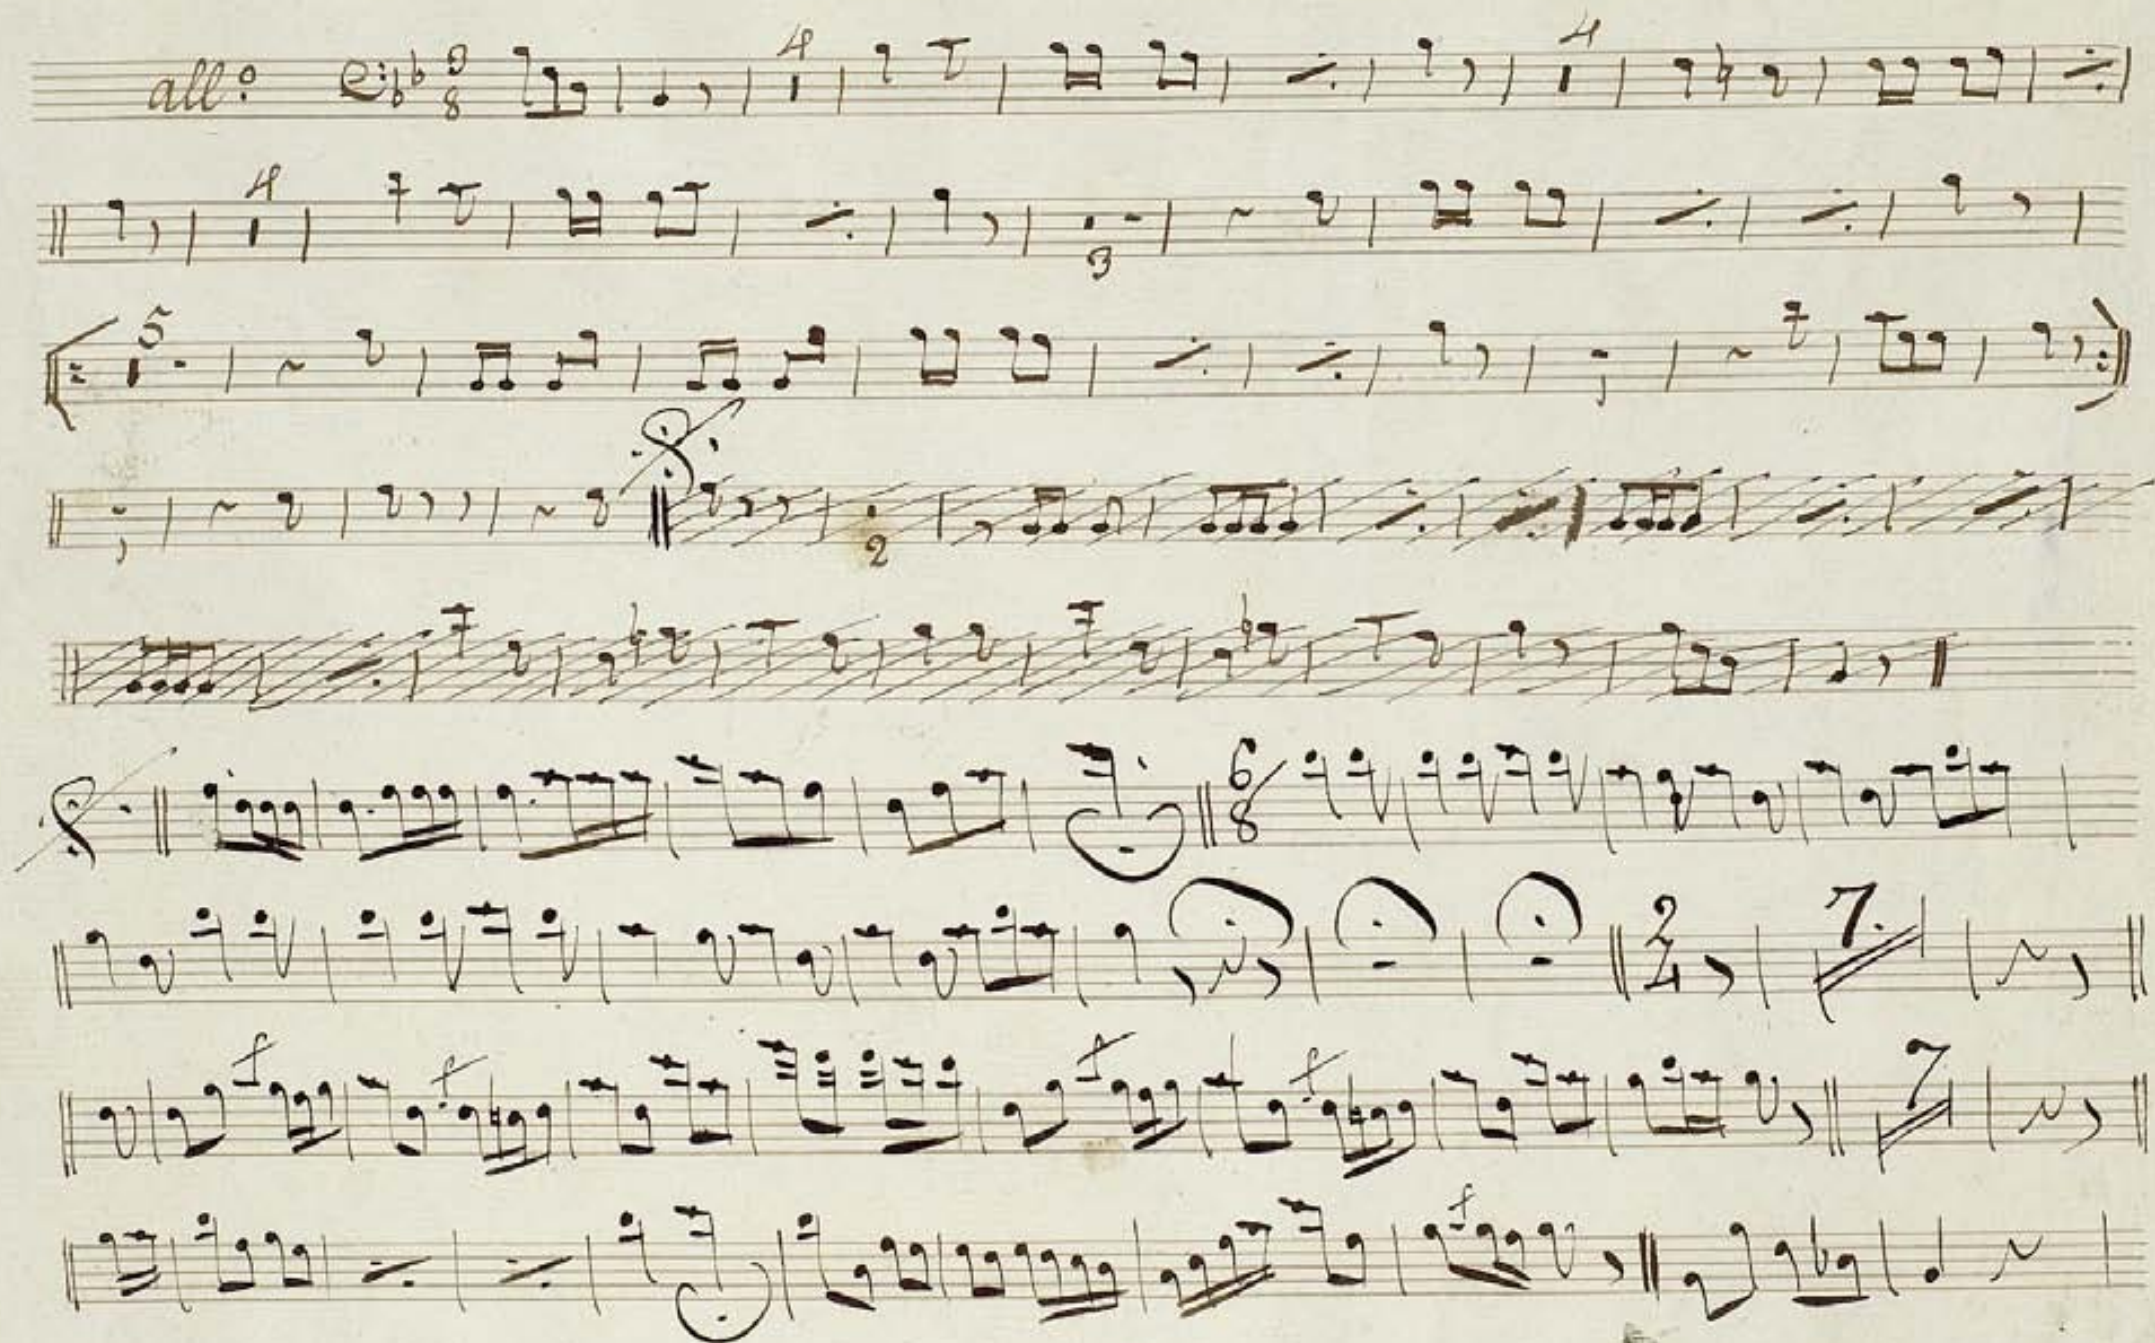 all.o 3 8 4 4
4 3
5
2
6 8
2 4 7.
f f f f 7
f